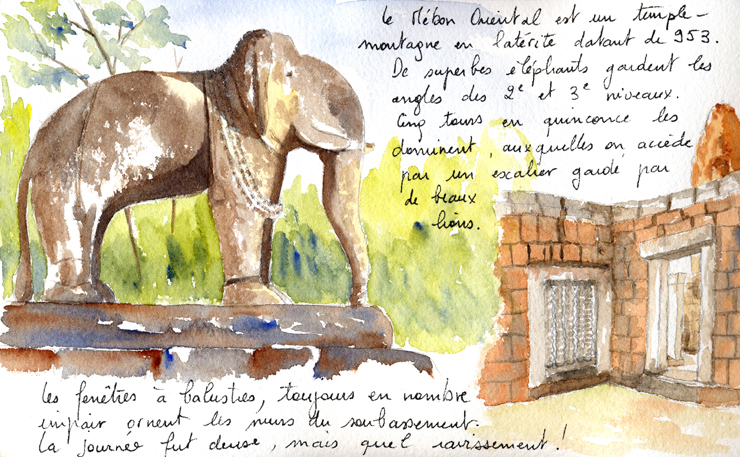 Le Mébon Oriental est un temple-
montagne en latérite datant de 953.
De superbes éléphants gardent les
angles des 2e et 3e niveaux.
Cinq tours en quinconce les
dominent, auxquelles on accède
par un escalier gardé par
de beaux
lions.
Les fenêtres à balustres, toujours en nombre
impair ornent les murs du soubassement.
La journée fut dense, mais quel ravissement !